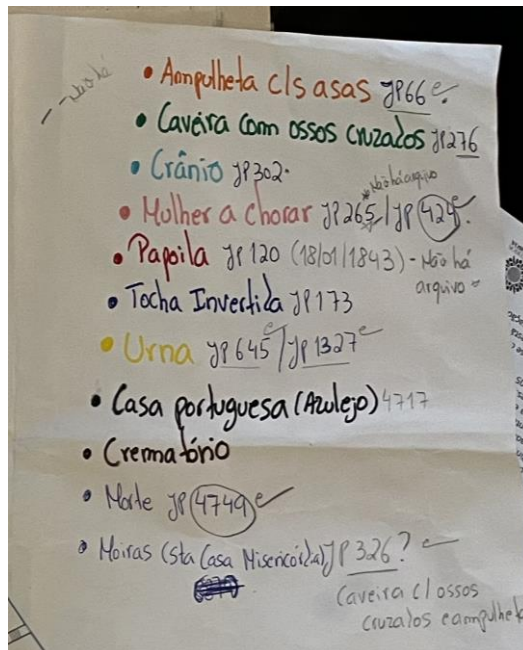 - - Não há
• Ampulheta c/s asas JP66 e.
• Caveira com ossos cruzados JP276
• Crânio JP302.
* Não há arquivo
• Mulher a chorar JP265/JP424.
• Papoila JP120 (18/01/1843) - Não há
arquivo
• Tocha Invertida JP173
• Urna JP645/JP1327
• Casa portuguesa (Azulejo) 4717
• Crematório
• Morte JP4749
• Moiras (Sta Casa Misericórdia) JP326?
Caveira c/ ossos
cruzados e ampulheta